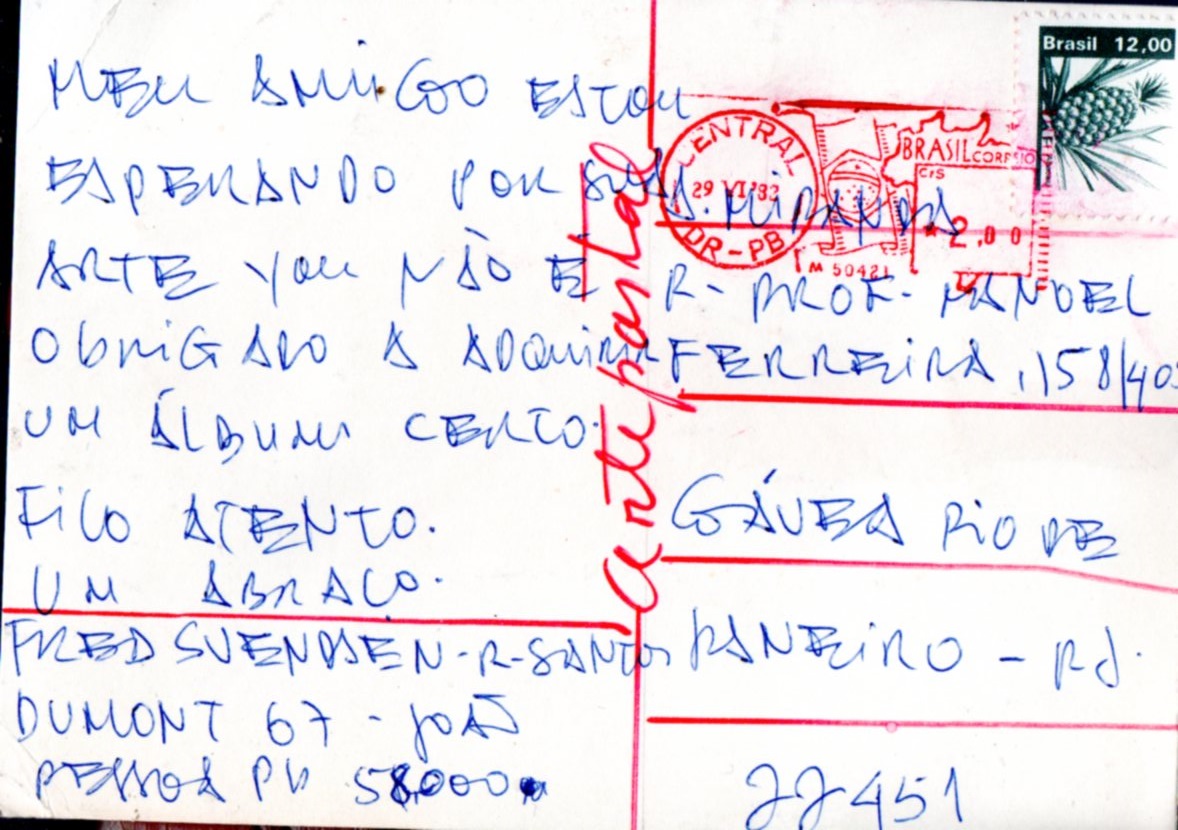 MEU AMIGO ESTOU
ESPERANDO POR SUA
ARTE VOU NÃO É
OBRIGADO A ADQUIRIR
UM ÁLBUM CERTO.
FICO ATENTO.
UM ABRAÇO.
FRED SVENDSEN - R - SANTOS
DUMONT 67 - JOÃO
PESSOA PB 58.000
arte postal
Brasil 12,00
CENTRAL
29 VI '83
DR-PB
BRASIL CORREIO
Cr$
2,00
M 50421
A. MIRANDA
R - PROF. MANOEL
FERREIRA, 158/403
GÁVEA RIO DE
JANEIRO - RJ.
22451